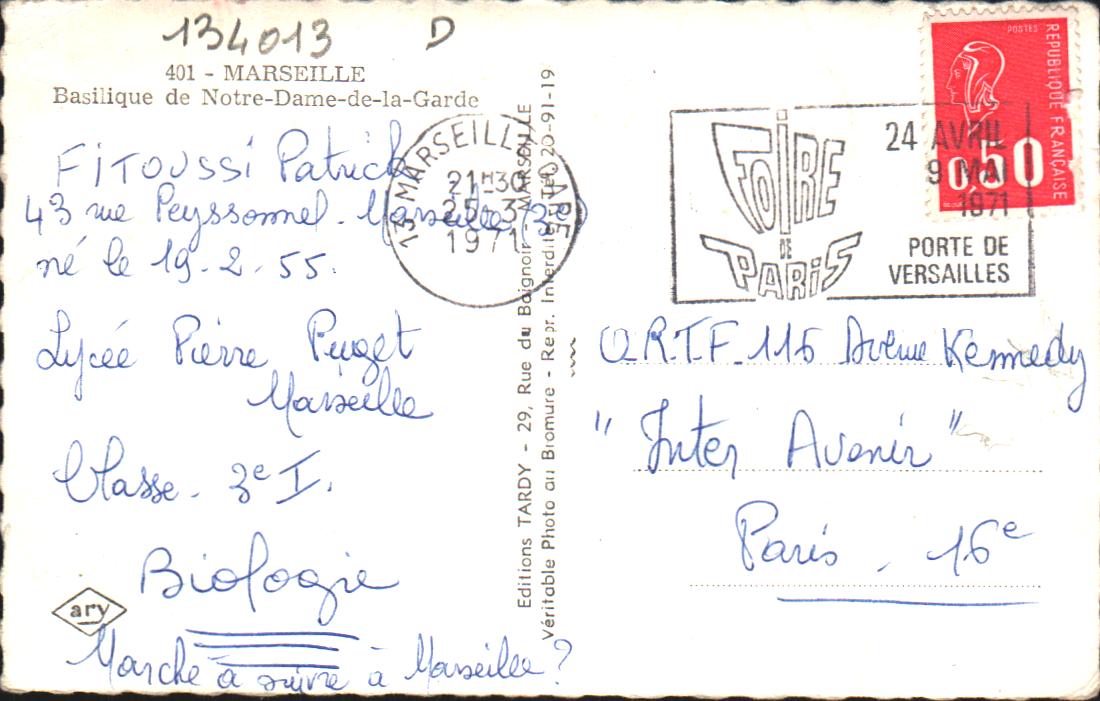 134013 D
401 - MARSEILLE
Basilique de Notre-Dame-de-la-Garde
FITOUSSI Patrick
43 rue Peyssonnel - Marseille 3e
né le 19-2-55.
Lycée Pierre Puget
Marseille
Classe - 3e I.
Biologie
Marche à suivre à Marseille?
ary
13 MARSEILLE GARE
21H30
25-3
1971
Editions TARDY - 29, Rue du Baignoir - MARSEILLE
Véritable Photo au Bromure - Repr. Interdite 20-91-19
FOIRE
DE
PARIS
24 AVRIL
9 MAI
1971
PORTE DE
VERSAILLES
POSTES
REPUBLIQUE FRANCAISE
O.R.T.F. 116 Avenue Kennedy
"Inter Avenir"
Paris - 16e